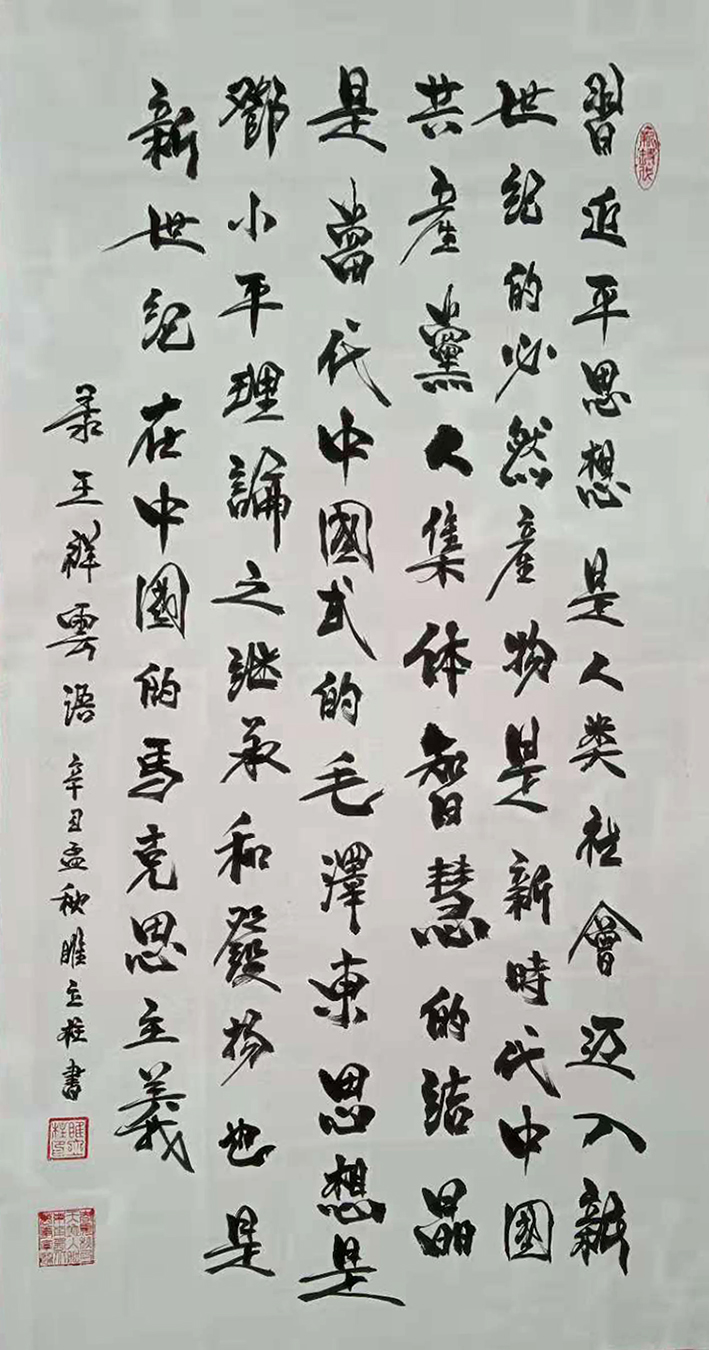 習近平思想是人类社會迈入新
世紀的必然產物是新時代中國
共產黨人集体智慧的结晶
是當代中國式的毛澤東思想是
鄧小平理論之継承和發揚也是
新世紀在中國的馬克思主義
录王祥雲语 辛丑孟秋睢立柱書